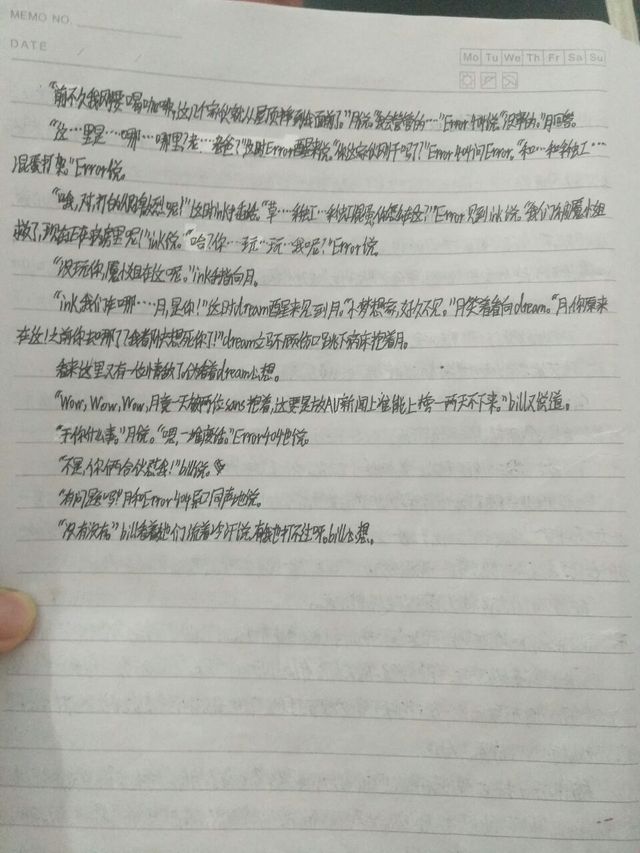 MEMO NO.
DATE
Mo Tu We Th Fr Sa Su
"前不久我刚要喝咖啡,这几个家伙就从屋顶掉到我面前了。"月说。"我会管管的…"Error404说。"没事的。"月回答。
"这…里是…哪…哪里?老…爸爸?"这时Error醒来说。"你这家伙刚干吗了?"Error404问Error。"和…和彩虹…
混蛋打架。"Error说。
"哦,对,打的很激烈呢!"这时ink说。"草…彩虹…彩虹混蛋你怎么在这?"Error见到ink说。"我们为魔小姐
救了,现在正在家里呢!"ink说。"哈?你…玩…玩…我呢?"Error说。
"没玩你,魔小姐在这呢。"ink手指向月。
"ink我们在哪…月,是你!"这时dream醒来见到月。"小梦想家,好久不见。"月笑着看向dream。"月,你原来
在这!之前你去哪了?我都快想死你了!"dream立马不顾伤口跳下病床抱着月。
看来这里又有一位小情敌了,伪看着dream心想。
"Wow,Wow,Wow,月竟一天被两位sans抱着,这要是放AU新闻上准能上榜一两天不下来。"bill又说道。
"干你什么事。"月说。"嗯,一堆废话。"Error404也说。
"不是,你俩合伙怼我!"bill说。
"有问题吗?"月和Error404异口同声地说。
"没有没有。"bill看着他们流着冷汗说,有我也打不过呀。bill心想。